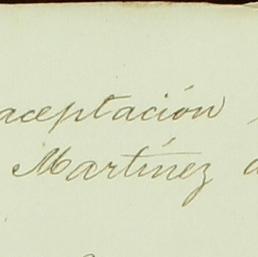 aceptación
Martínez